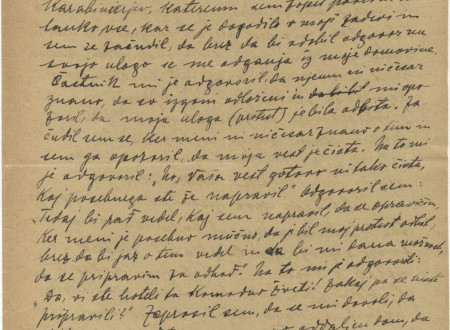 Karabinerju, kateremu sem
tanko, vse, kar se je dogodilo v moji zadevi in
sem se začudil, da brez da bi dobil odgovor na
svojo vlogo se me odganja iz moje domovine.
Častnik mi je odgovoril, da njemu ni ničesar
znano, da so izgoni odloženi in da bi bil mi
da moja vloga (protest) je bila odbita. Za
čudil sem se, ker meni ni ničesar znano o tem in
sem ga opozoril, da moja vest je čista. Na to mi
je odgovoril: "No, Vaša vest gotovo ni tako čista,
kaj posebnega ste že napravil". Odgovoril sem:
"Tedaj bi rad vedel, kaj sem napravil, da se opravičim,
ker meni je posebno mučno, da je bil moj protest odbit
brez da bi jaz o tem vedel in da bi mi dana
da se pripravim za odhod." Na to mi je odgovoril:
"Da, vi ste hoteli ta komodno živeti! Zakaj pa se niste
pripravili?" Zaprosil sem, da se mi dovoli, da
dom, da